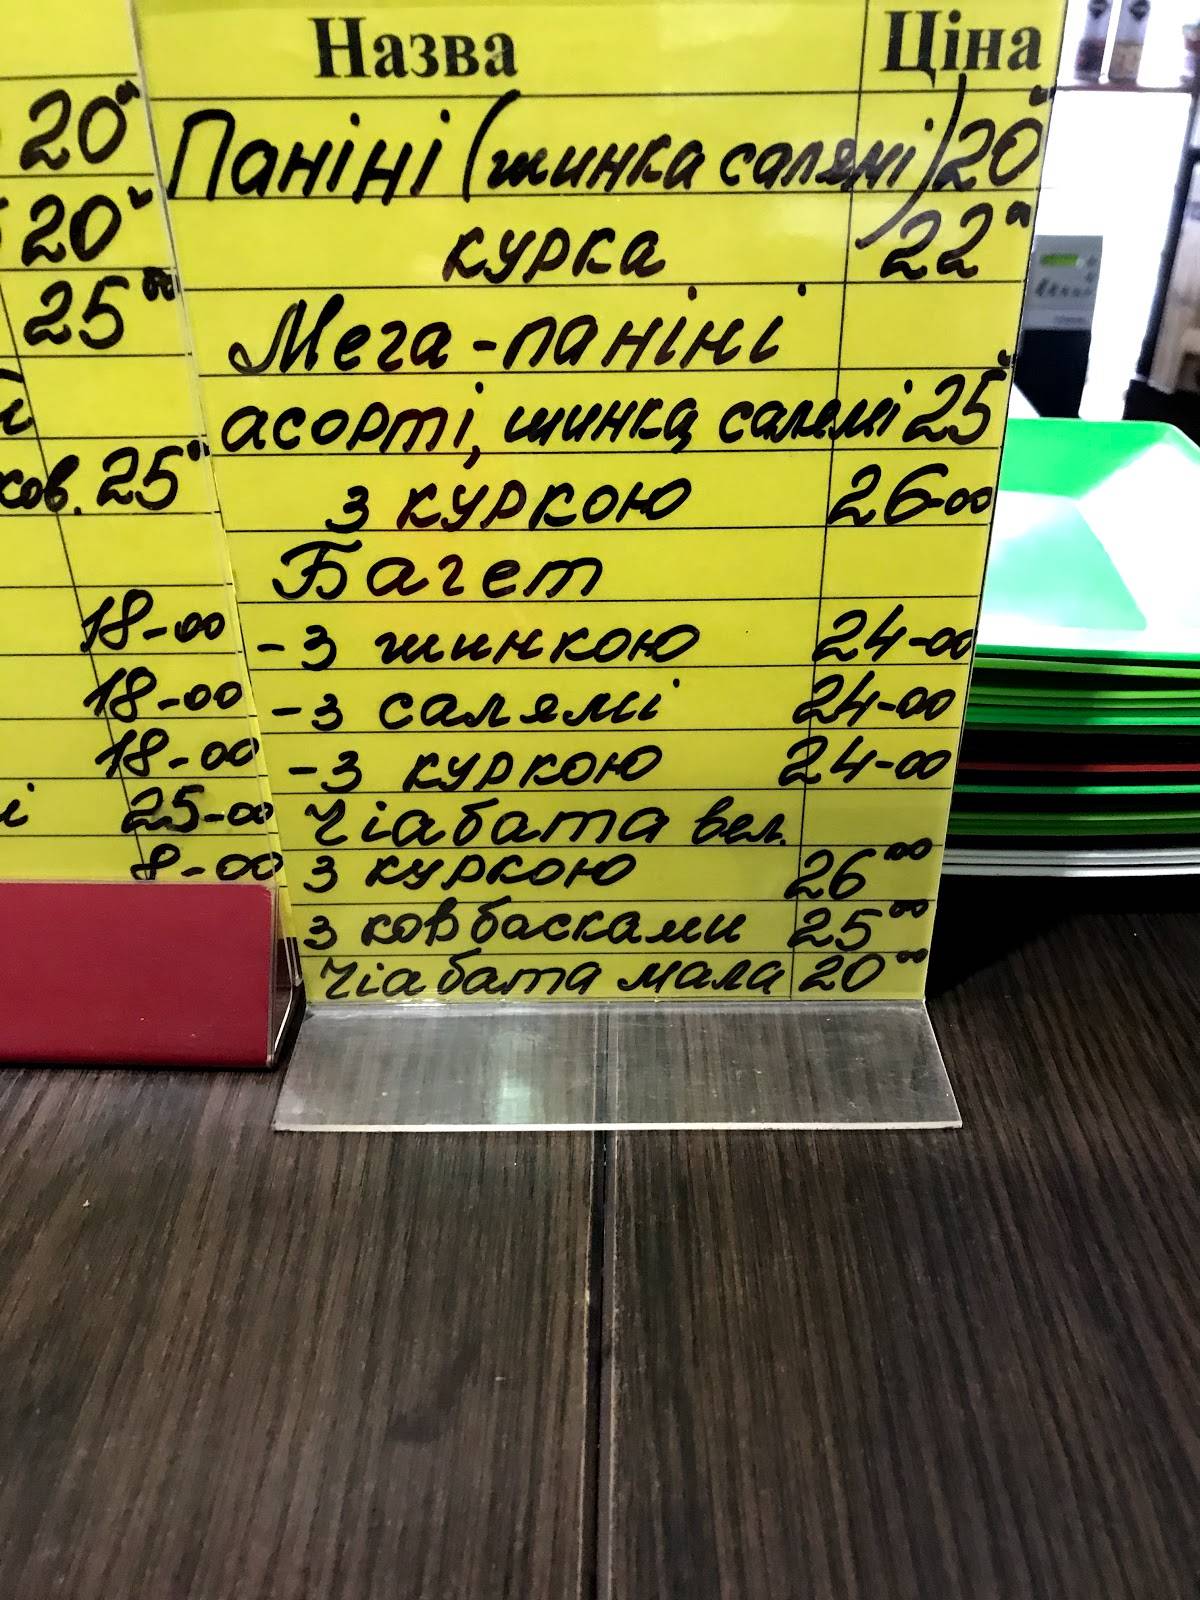 20
20
25
ков. 25
18-00
18-00
18-00
і 25-00
8-00
Назва Ціна
Паніні (шинка салямі) 20
курка 22
Мега-паніні
асорті, шинка, салямі 25
з куркою 26-00
Багет
-з шинкою 24-00
-з салямі 24-00
-з куркою 24-00
Чіабата вел.
з куркою 26 00
з ковбасками 25 00
Чіабата мала 20 00